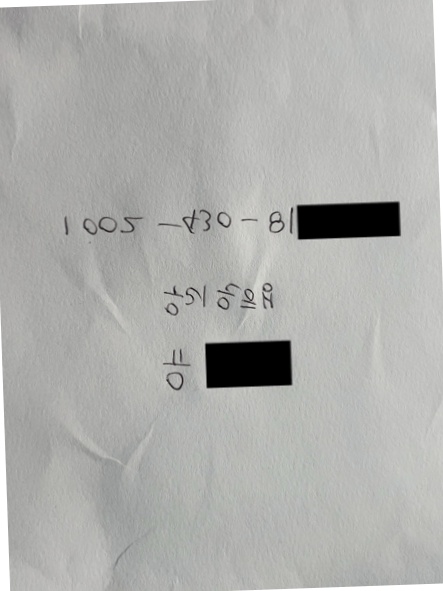 1002 - 430 - 81
우리은행